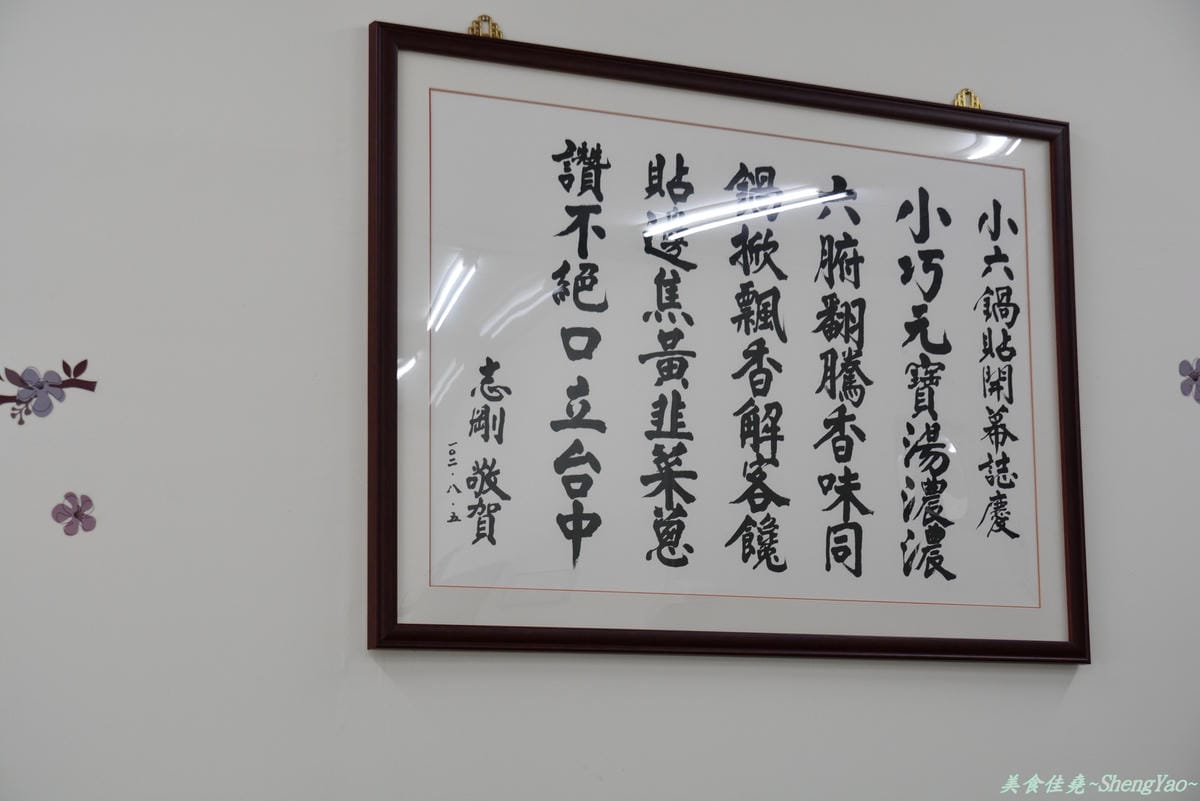 小六鍋貼開幕誌慶
小巧元寶湯濃濃
六腑翻騰香味同
鍋掀飄香解客饞
貼邊焦黃韭菜蔥
讚不絕口立台中
志剛 敬賀
一○二．八．五
美食佳堯~ShengYao~